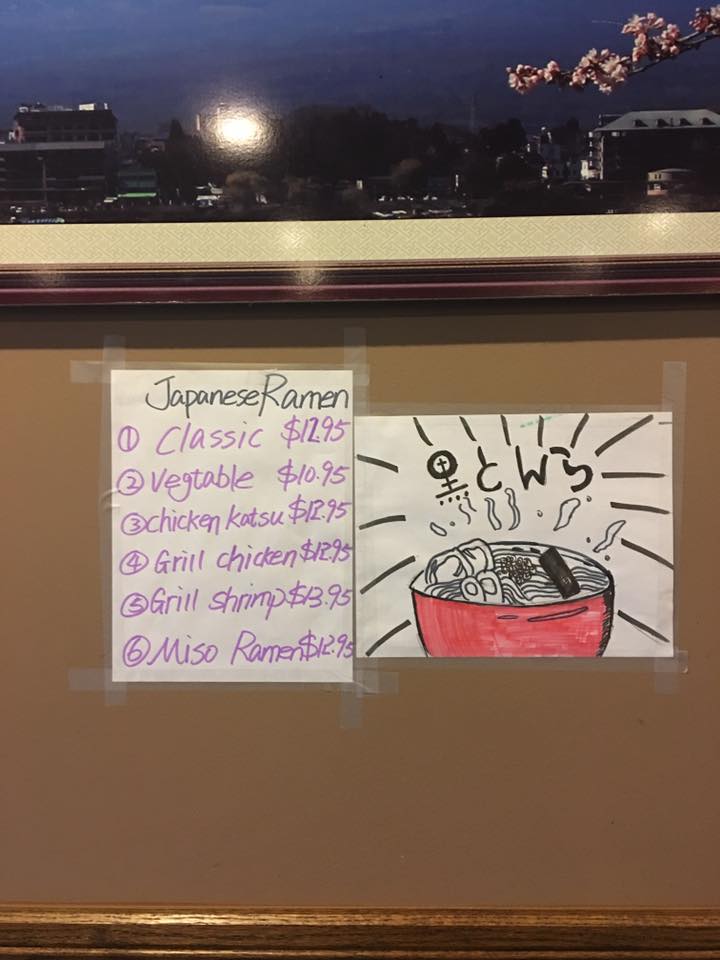 Japanese Ramen
① Classic $12.95
② Vegtable $10.95
③ chicken katsu $12.95
④ Grill chicken $12.95
⑤ Grill shrimp $13.95
⑥ Miso Ramen $12.95
黒とんこつ